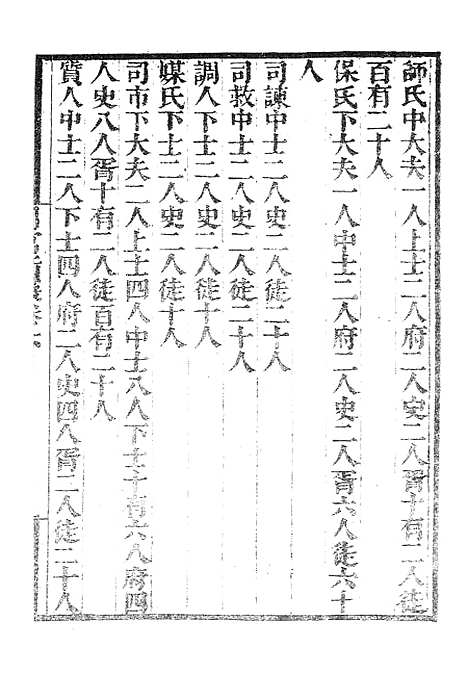 師氏中大夫一人上士二人府二人史二人胥十有二人徒
百有二十人
保氏下大夫一人中士二人府二人史二人胥六人徒六十
人
司諫中士二人史二人徒二十人
司救中士二人史二人徒二十人
調人下士二人史二人徒十人
媒氏下士二人史二人徒十人
司市下大夫二人上士四人中士八人下士十有六人府四
人史八人胥十有二人徒百有二十人
質人中士二人下士四人府二人史四人胥二人徒二十人